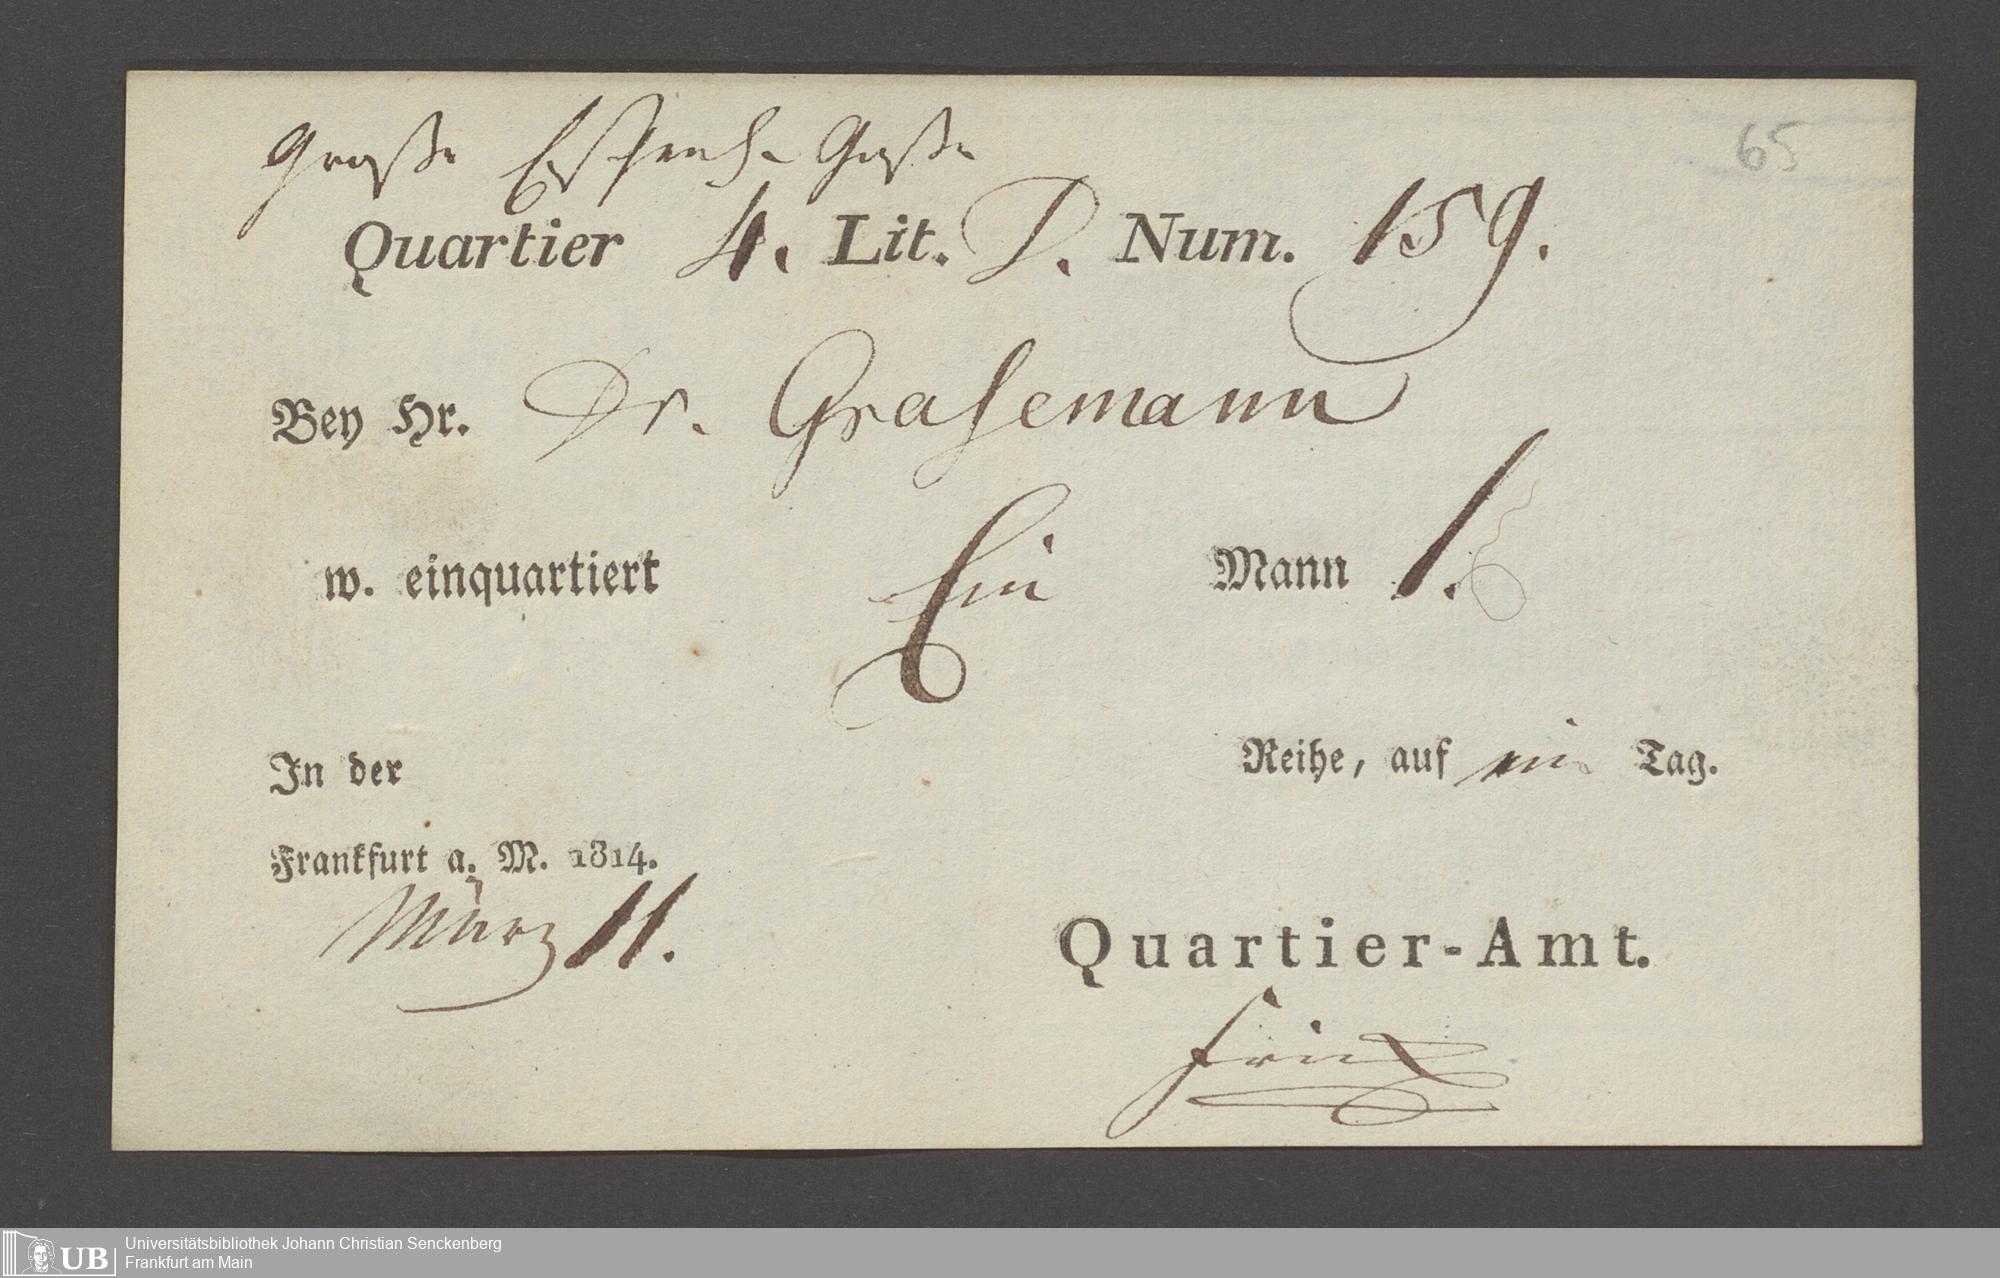 Große Eschenh. Gasse
65
Quartier 4. Lit. D. Num. 159.
Bey Hr. Dr. Grasemann
w. einquartiert Ein Mann 1.
In der Reihe, auf ein Tag.
Frankfurt a. M. 1814.
März 11.
Quartier-Amt.
UB
Universitätsbibliothek Johann Christian Senckenberg
Frankfurt am Main